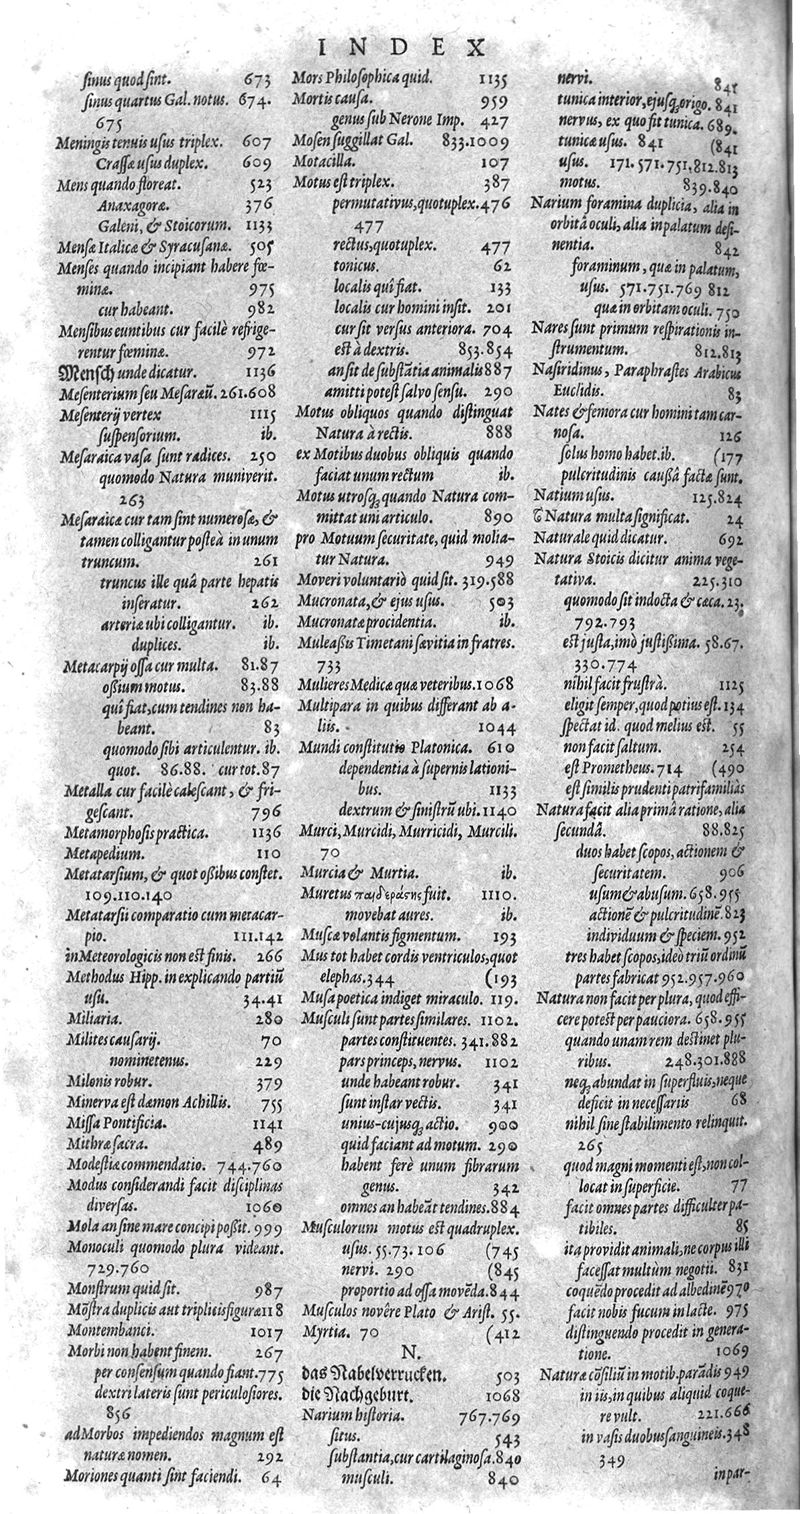 INDEX
sinus quod sint. 673
sinus quartus Gal. notus. 674.
675
Meningis tenuis usus triplex. 607
Crassæ usus duplex. 609
Mens quando floreat. 523
Anaxagoræ. 376
Galeni, & Stoicorum. 1133
Mensæ Italicæ & Syracusanæ. 505
Menses quando incipiant habere fœ-
minæ. 975
cur habeant. 982
Mensibus euntibus cur facilè refrige-
rentur fœminæ. 972
Mensch unde dicatur. 1136
Mesenterium seu Mesaraeū. 261.608
Mesenterij vertex 1115
suspensorium. ib.
Mesaraica vasa sunt radices. 250
quomodo Natura muniverit.
263
Mesaraicæ cur tam sint numerosæ, &
tamen colligantur posteà in unum
truncum. 261
truncus ille quâ parte hepatis
inseratur. 262
arteriæ ubi colligantur. ib.
duplices. ib.
Metacarpij ossa cur multa. 81.87
ossium motus. 83.88
quî fiat, cum tendines non ha-
beant. 83
quomodo sibi articulentur. ib.
quot. 86.88. cur tot. 87
Metalla cur facilè calescant, & fri-
gescant. 796
Metamorphosis practica. 1136
Metapedium. 110
Metatarsium, & quot ossibus constet.
109.110.140
Metatarsii comparatio cum metacar-
pio. 111.142
in Meteorologicis non est finis. 266
Methodus Hipp. in explicando partiū
usu. 34.41
Miliaria. 280
Milites causarij. 70
nominetenus. 229
Milonis robur. 379
Minerva est dæmon Achillis. 755
Missa Pontificia. 1141
Mithræ sacra. 489
Modestiæ commendatio. 744.760
Modus considerandi facit disciplinas
diversas. 1060
Mola an sine mare concipi possit. 999
Monoculi quomodo plura videant.
729.760
Monstrum quid sit. 987
Mōstra duplicis aut triplicis figuræ 118
Montembanci. 1017
Morbi non habent finem. 267
per consensum quando fiant. 775
dextri lateris sunt periculosiores.
856
ad Morbos impediendos magnum est
naturæ nomen. 292
Moriones quanti sint faciendi. 64
Mors Philosophica quid. 1135
Mortis causa. 959
genus sub Nerone Imp. 427
Mosen suggillat Gal. 833.1009
Motacilla. 107
Motus est triplex. 387
permutativus, quotuplex. 476
477
rectus, quotuplex. 477
tonicus. 62
localis quî fiat. 133
localis cur homini insit. 201
cur sit versus anteriora. 704
est à dextris. 853.854
an sit de substātia animalis 887
amitti potest salvo sensu. 290
Motus obliquos quando distinguat
Natura à rectis. 888
ex Motibus duobus obliquis quando
faciat unum rectum ib.
Motus utrosq; quando Natura com-
mittat uni articulo. 890
pro Motuum securitate, quid molia-
tur Natura. 949
Moveri voluntariò quid sit. 319.588
Mucronata, & ejus usus. 503
Mucronatæ procidentia. ib.
Muleaßis Timetani sævitia in fratres.
733
Mulieres Medicæ quæ veteribus. 1068
Multipara in quibus differant ab a-
liis. 1044
Mundi constitutio Platonica. 610
dependentia à supernis lationi-
bus. 1133
dextrum & sinistrū ubi. 1140
Murci, Murcidi, Murricidi, Murcili.
70
Murcia & Murtia. ib.
Muretus παιδεράστης fuit. 1110.
movebat aures. ib.
Muscæ volantis figmentum. 193
Mus tot habet cordis ventriculos, quot
elephas. 344 (193
Musa poetica indiget miraculo. 119.
Musculi sunt partes similares. 1102.
partes constituentes. 341.882
pars princeps, nervus. 1102
unde habeant robur. 341
sunt instar vectis. 341
unius-cujusq; actio. 900
quid faciant ad motum. 290
habent ferè unum fibrarum
genus. 342
omnes an habeāt tendines. 884
Musculorum motus est quadruplex.
usus. 55.73.106 (745
nervi. 290 (845
proportio ad ossa movēda. 844
Musculos novêre Plato & Arist. 55.
Myrtia. 70 (412
N.
das Nabelverrucken. 503
die Nachgeburt. 1068
Narium historia. 767.769
situs. 543
substantia, cur cartilaginosa. 840
musculi. 840
nervi. 841
tunica interior, ejusq; origo. 841
nervus, ex quo fit tunica. 689.
tunicæ usus. 841 (841
usus. 171.571.751,812.813
motus. 839.840
Narium foramina duplicia, alia in
orbitâ oculi, alia in palatum desi-
nentia. 842
foraminum, quæ in palatum,
usus. 571.751.769 812
quæ in orbitam oculi. 750
Nares sunt primum respirationis in-
strumentum. 812.813
Nasiridinus, Paraphrastes Arabicus
Euclidis. 83
Nates & femora cur homini tam car-
nosa. 126
solus homo habet. ib. (177
pulcritudinis caussâ factæ sunt.
Natium usus. 125.824
Natura multa significat. 24
Naturale quid dicatur. 692
Natura Stoicis dicitur anima vege-
tativa. 225.310
quomodo sit indocta & cæca. 23.
792.793
est justa, imò justißima. 58.67.
330.774
nihil facit frustrà. 1125
eligit semper, quod potius est. 134
spectat id quod melius est. 55
non facit saltum. 254
est Prometheus. 714 (490
est similis prudenti patrifamiliàs
Natura facit alia primâ ratione, alia
secundâ. 88.825
duos habet scopos, actionem &
securitatem. 906
usum & abusum. 658.955
actionē & pulcritudinē. 823
individuum & speciem. 952
tres habet scopos, ideò triū ordinū
partes fabricat 952.957.960
Natura non facit per plura, quod effi-
cere potest per pauciora. 658.955
quando unam rem destinet plu-
ribus. 248.301.888
neq; abundat in superfluis, neque
deficit in necessariis 68
nihil sine stabilimento relinquit.
265
quod magni momenti est, non col-
locat in superficie. 77
facit omnes partes difficulter pa-
tibiles. 85
ita providit animali, ne corpus illi
facessat multùm negotii. 831
coquēdo procedit ad albedinē 970
facit nobis fucum in lacte. 975
distinguendo procedit in genera-
tione. 1069
Naturæ cōsiliū in motib. parādis 949
in iis, in quibus aliquid coque-
re vult. 221.666
in vasis duobus sanguineis. 348
349
in par-